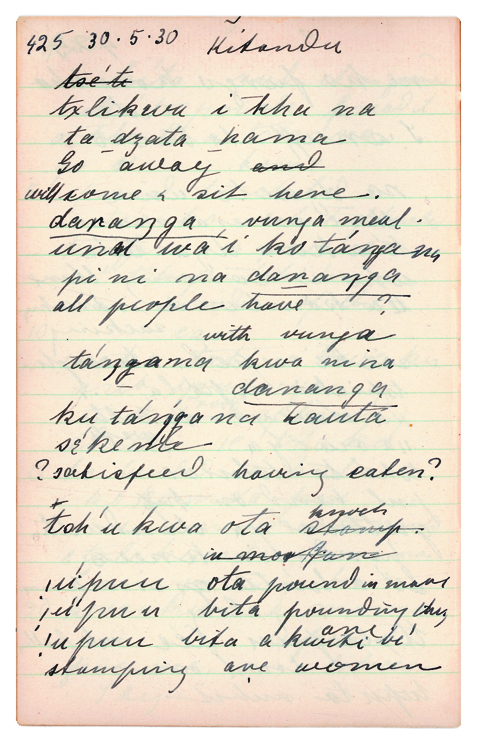 425 30.5.30 Kitondu
tsé ti
txlikwa i kha na
ta dzata hama
Go away and
will come & sit here.
dananga vunga meal.
una wá i ko tánga na
pi ni na dananga
all people have ?
with vunga
tángama kwa nina
dananga
ku tángana kauta
sękeme
? satisfied having eaten?
tch'u kwa ota stamp.
in mortar
!úpuu ota pound in
!úpuu bita pounding
!úpuu bita a kwiti bi
are
stamping are women